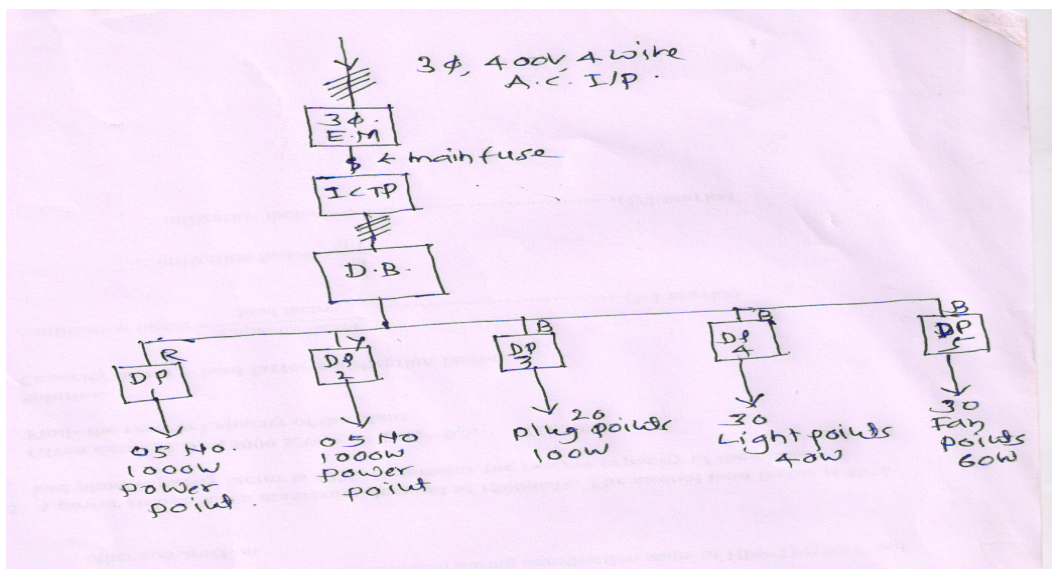 3φ, 400V 4 wire
A.C. I/P.
3φ.
E.M
← main fuse
ICTP
D.B.
R
Y
B
B
B
DP
1
DP
2
DP
3
DP
4
DP
5
05 No.
1000W
power
point.
05 No
1000W
power
point
20
plug points
100W
30
Light points
40W
30
Fan
points
60W